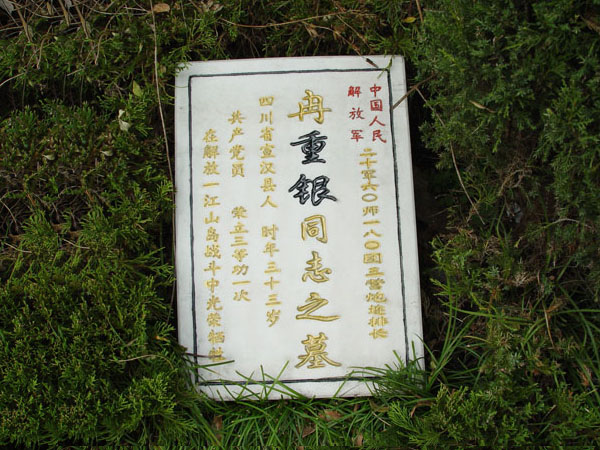 中国人民
解放军
二十军六〇师一八〇团三营炮连排长
冉重银同志之墓
四川省宣汉县人 时年三十三岁
共产党员 荣立三等功一次
在解放一江山岛战斗中光荣牺牲